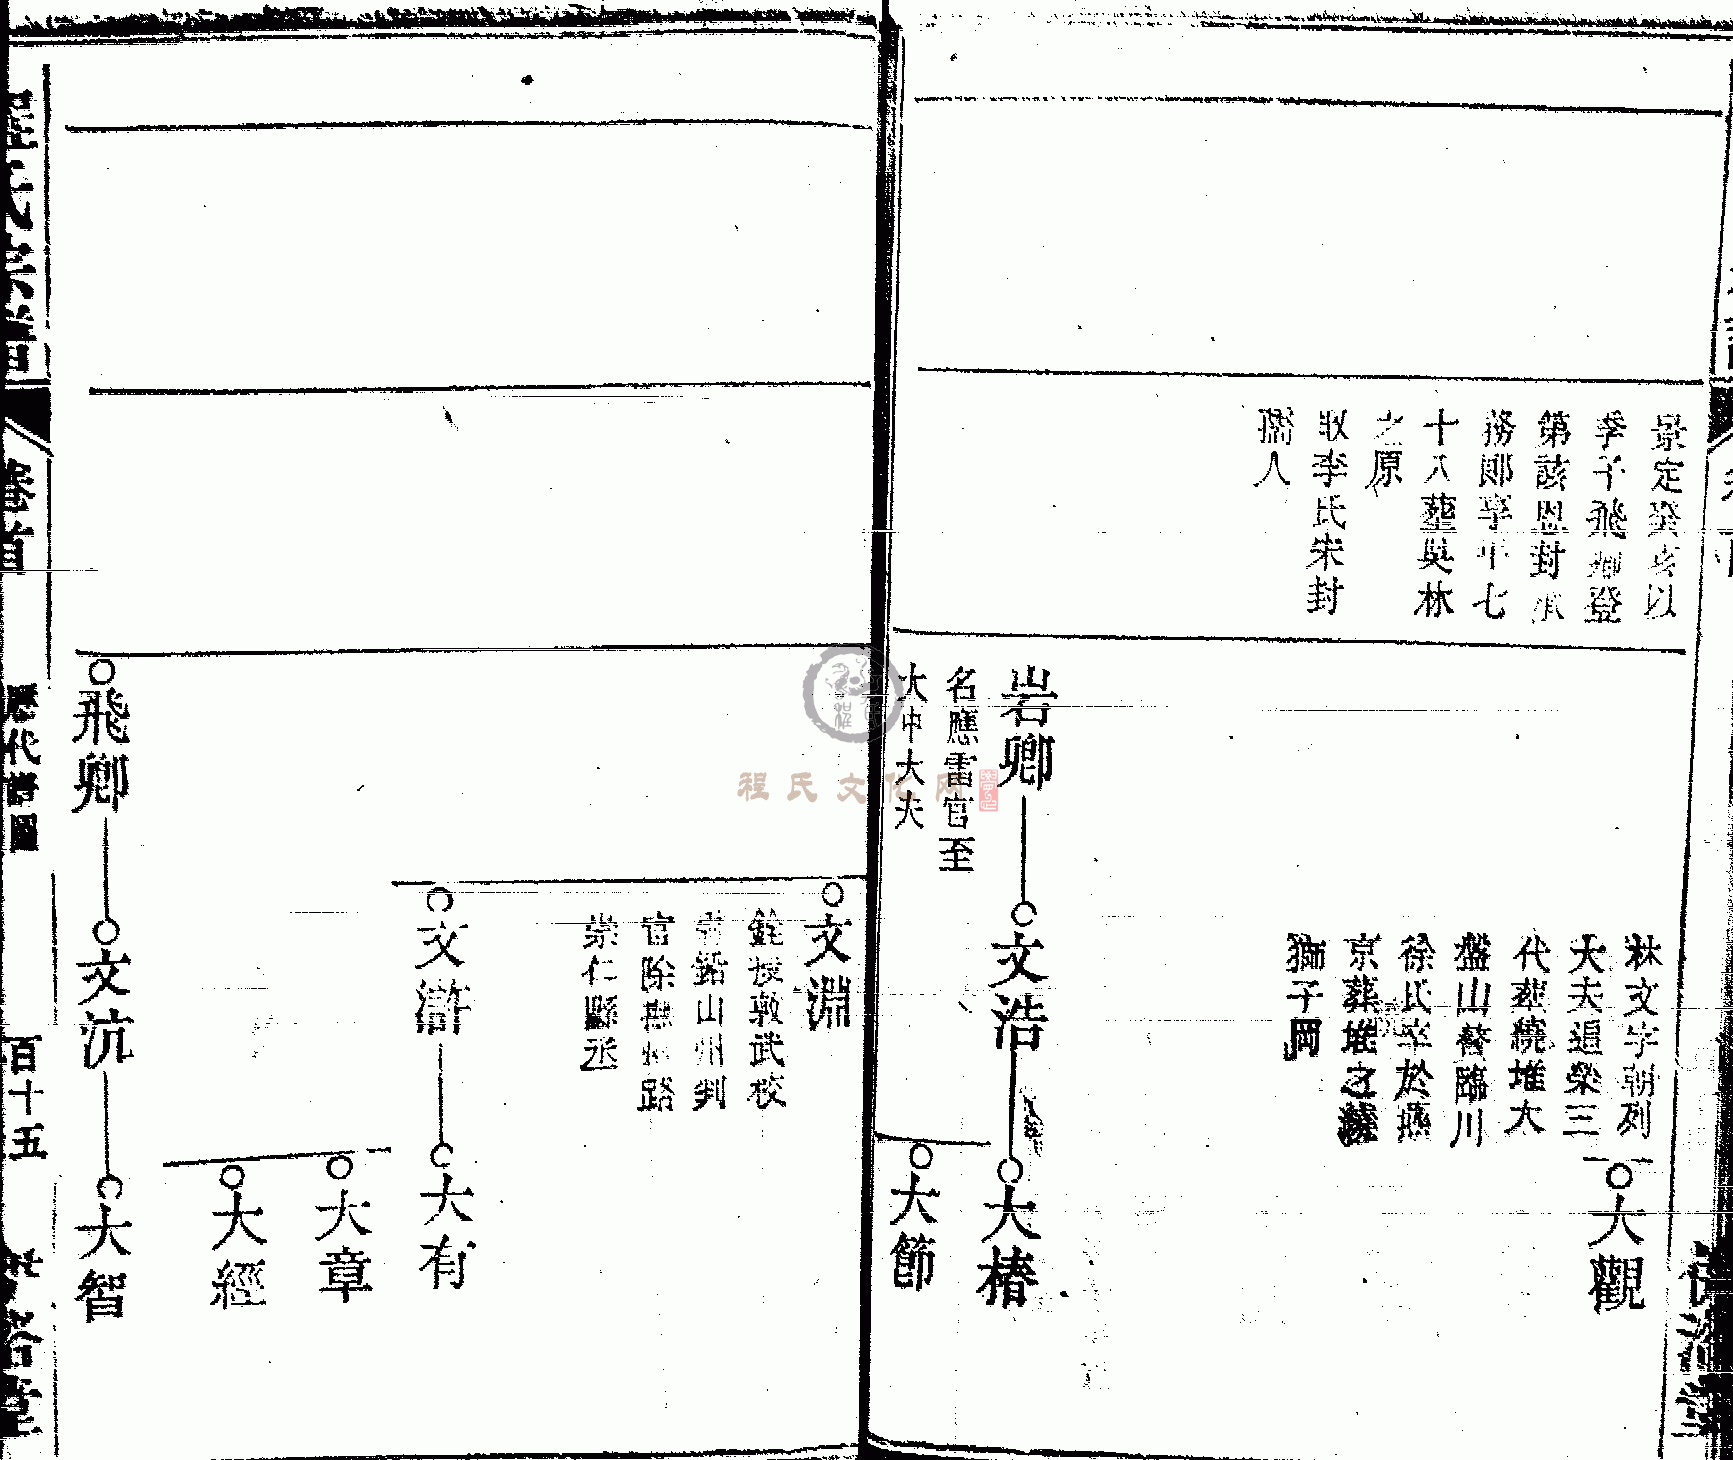 景定癸亥以
季子飛卿登
第該恩封承
務郎享年七
十八葬吳林
之原
取李氏宋封
孺人
林文字朝列
大夫追榮三
代葬繞堆大
盤山督臨川
徐氏卒於燕
京葬堆之繞
獅子岡
大觀
岩卿
名應雷官至
大中大夫
文浩
大椿
大節
文淵
銓授敦武校
尉鉛山州判
官除撫州路
崇仁縣丞
文滸
大有
大章
大經
飛卿
文沆
大智
程氏宗譜
卷首
歷代譜圖
百十五
程氏文化网